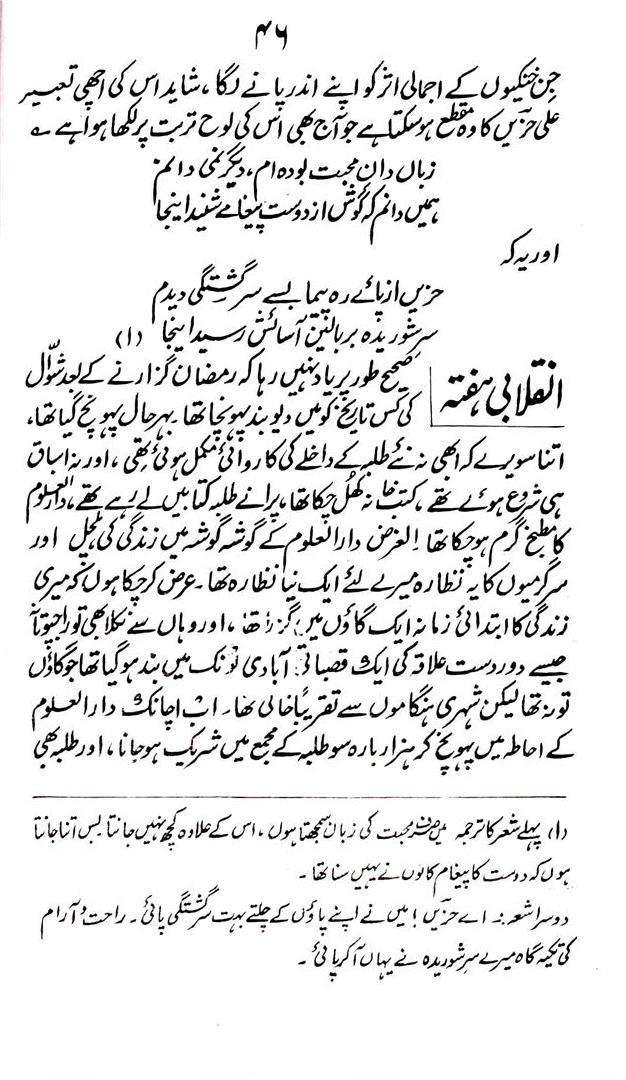 ۴۶
جن خنکیوں کے اجمالی اثر کو اپنے اندر پانے لگا، شاید اس کی اچھی تعبیر
علی حزیں کا وہ مقطع ہو سکتا ہے جو آج بھی اس کی لوح تربت پر لکھا ہوا ہے ؎
زباں دانِ محبت بودہ ام، دیگر نمی دانم
ہمیں دانم کہ گوش از دوست پیغامے شنید اینجا
اور یہ کہ
حزیں از پائے رہ پیما بسے سرگشتگی دیدم
سر شوریدہ بر بالین آسائش رسید اینجا (۱)
انقلابی ہفتہ
صحیح طور پر یاد نہیں رہا کہ رمضان گزارنے کے بعد شوّال
کی کس تاریخ کو میں دیوبند پہونچا تھا۔ بہر حال پہونچ گیا تھا،
اتنا سویرے کہ ابھی نہ نئے طلبہ کے داخلے کی کاروائی مکمل ہوئی تھی، اور نہ اسباق
ہی شروع ہوئے تھے، کتب خانہ کھُل چکا تھا، پرانے طلبہ کتابیں لے رہے تھے، دارالعلوم
کا مطبخ گرم ہو چکا تھا الغرض دارالعلوم کے گوشہ گوشہ میں زندگی کی ہلچل اور
سرگرمیوں کا یہ نظارہ میرے لئے ایک نیا نظارہ تھا۔ عرض کر چکا ہوں کہ میری
زندگی کا ابتدائی زمانہ ایک گاؤں میں گزرا تھا، اور وہاں سے نکلا بھی تو راجپوتانہ
جیسے دور دست علاقہ کی ایک قصباتی آبادی ٹونک میں بند ہو گیا تھا جو گاؤں
تو نہ تھا لیکن شہری ہنگاموں سے تقریباً خالی تھا۔ اب اچانک دارالعلوم
کے احاطہ میں پہونچ کر ہزار بارہ سو طلبہ کے مجمع میں شریک ہو جانا، اور طلبہ بھی
(۱) پہلے شعر کا ترجمہ میں صرف محبت کی زبان سمجھتا ہوں، اس کے علاوہ کچھ نہیں جانتا بس اتنا جانتا
ہوں کہ دوست کا پیغام کانوں نے یہیں سنا تھا۔
دوسرا شعر :۔ اے حزیں! میں نے اپنے پاؤں کے چلتے بہت سرگشتگی پائی۔ راحت و آرام
کی تکیہ گاہ میرے سرِ شوریدہ نے یہاں آ کر پائی۔